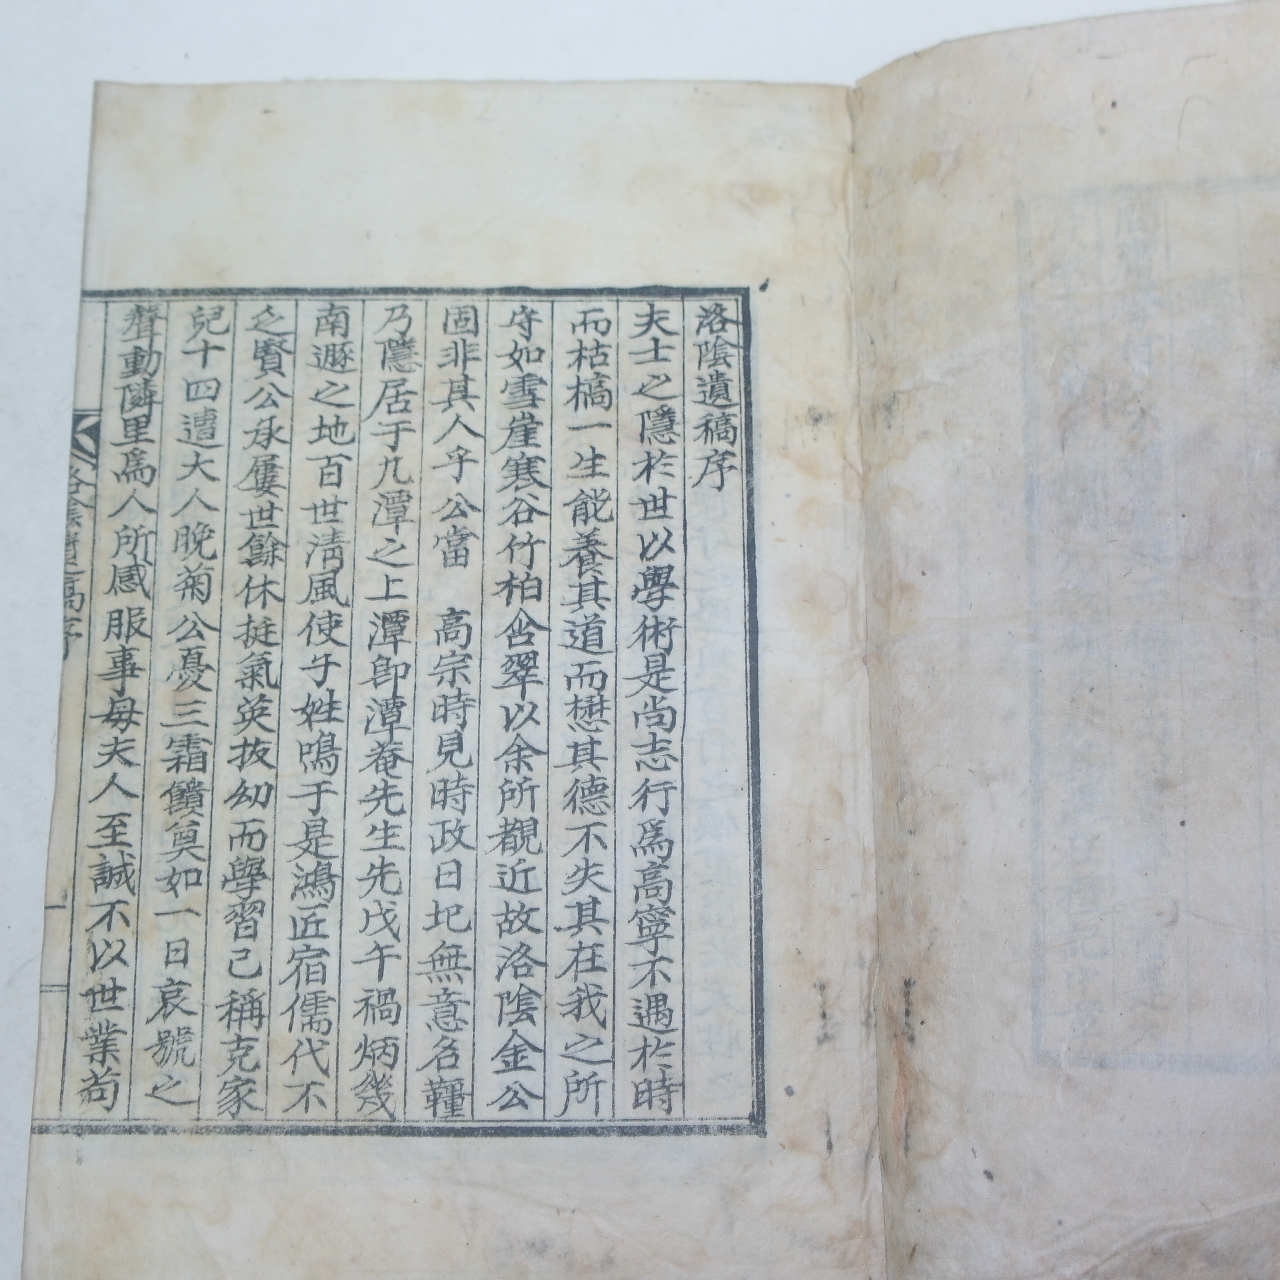 洛陰遺稿序
夫士之隱於世以學術是尙志行爲高寧不遇於時
而枯槁一生能養其道而懋其德不失其在我之所
守如雪崖寒谷竹柏含翠以余所覩近故洛陰金公
固非其人乎公當　高宗時見時政日圮無意名韁
乃隱居于九潭之上潭卽潭菴先生先戊午禍炳幾
南遯之地百世淸風使子姓鳴于是鴻匠宿儒代不
乏賢公承屢世餘休挺氣英拔幼而學習已稱克家
兒十四遭大人晩菊公憂三霜饋奠如一日哀號之
聲動隣里爲人所感服事毋夫人至誠不以世業苟
洛陰遺稿序
一